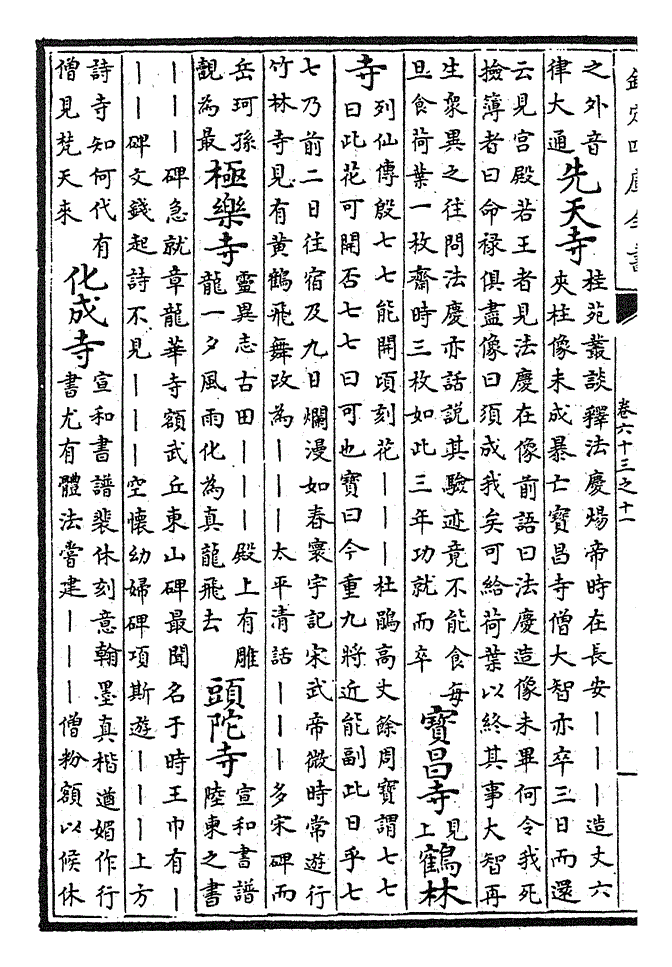 欽定四庫全書
卷六十三之十一
之外音
律大通
先天寺
桂苑叢談釋法慶煬帝時在長安｜｜｜造丈六
夾柱像未成暴亡寶昌寺僧大智亦卒三日而還
云見宮殿若王者見法慶在像前語曰法慶造像未畢何令我死
撿簿者曰命禄俱盡像曰須成我矣可給荷葉以終其事大智再
生衆異之往問法慶亦話說其驗迹竟不能食每
旦食荷葉一枚齋時三枚如此三年功就而卒
寶昌寺
見
上
鶴林
寺
列仙傳殷七七能開頃刻花｜｜｜杜鵑高丈餘周寶謂七七
曰此花可開否七七曰可也寶曰今重九將近能副此日乎七
七乃前二日往宿及九日爛漫如春寰宇記宋武帝微時常遊行
竹林寺見有黄鶴飛舞改為｜｜｜太平清話｜｜｜多宋碑而
岳珂孫
覿為最
極樂寺
靈異志古田｜｜｜殿上有雕
龍一夕風雨化為真龍飛去
頭陀寺
宣和書譜
陸東之書
｜｜｜碑急就章龍華寺額武丘東山碑最聞名于時王巾有｜
｜｜碑文錢起詩不見｜｜｜空懷幼婦碑項斯遊｜｜｜上方
詩寺知何代有
僧見梵天來
化成寺
宣和書譜裴休刻意翰墨真楷遒媚作行
書尤有體法嘗建｜｜｜僧粉額以候休